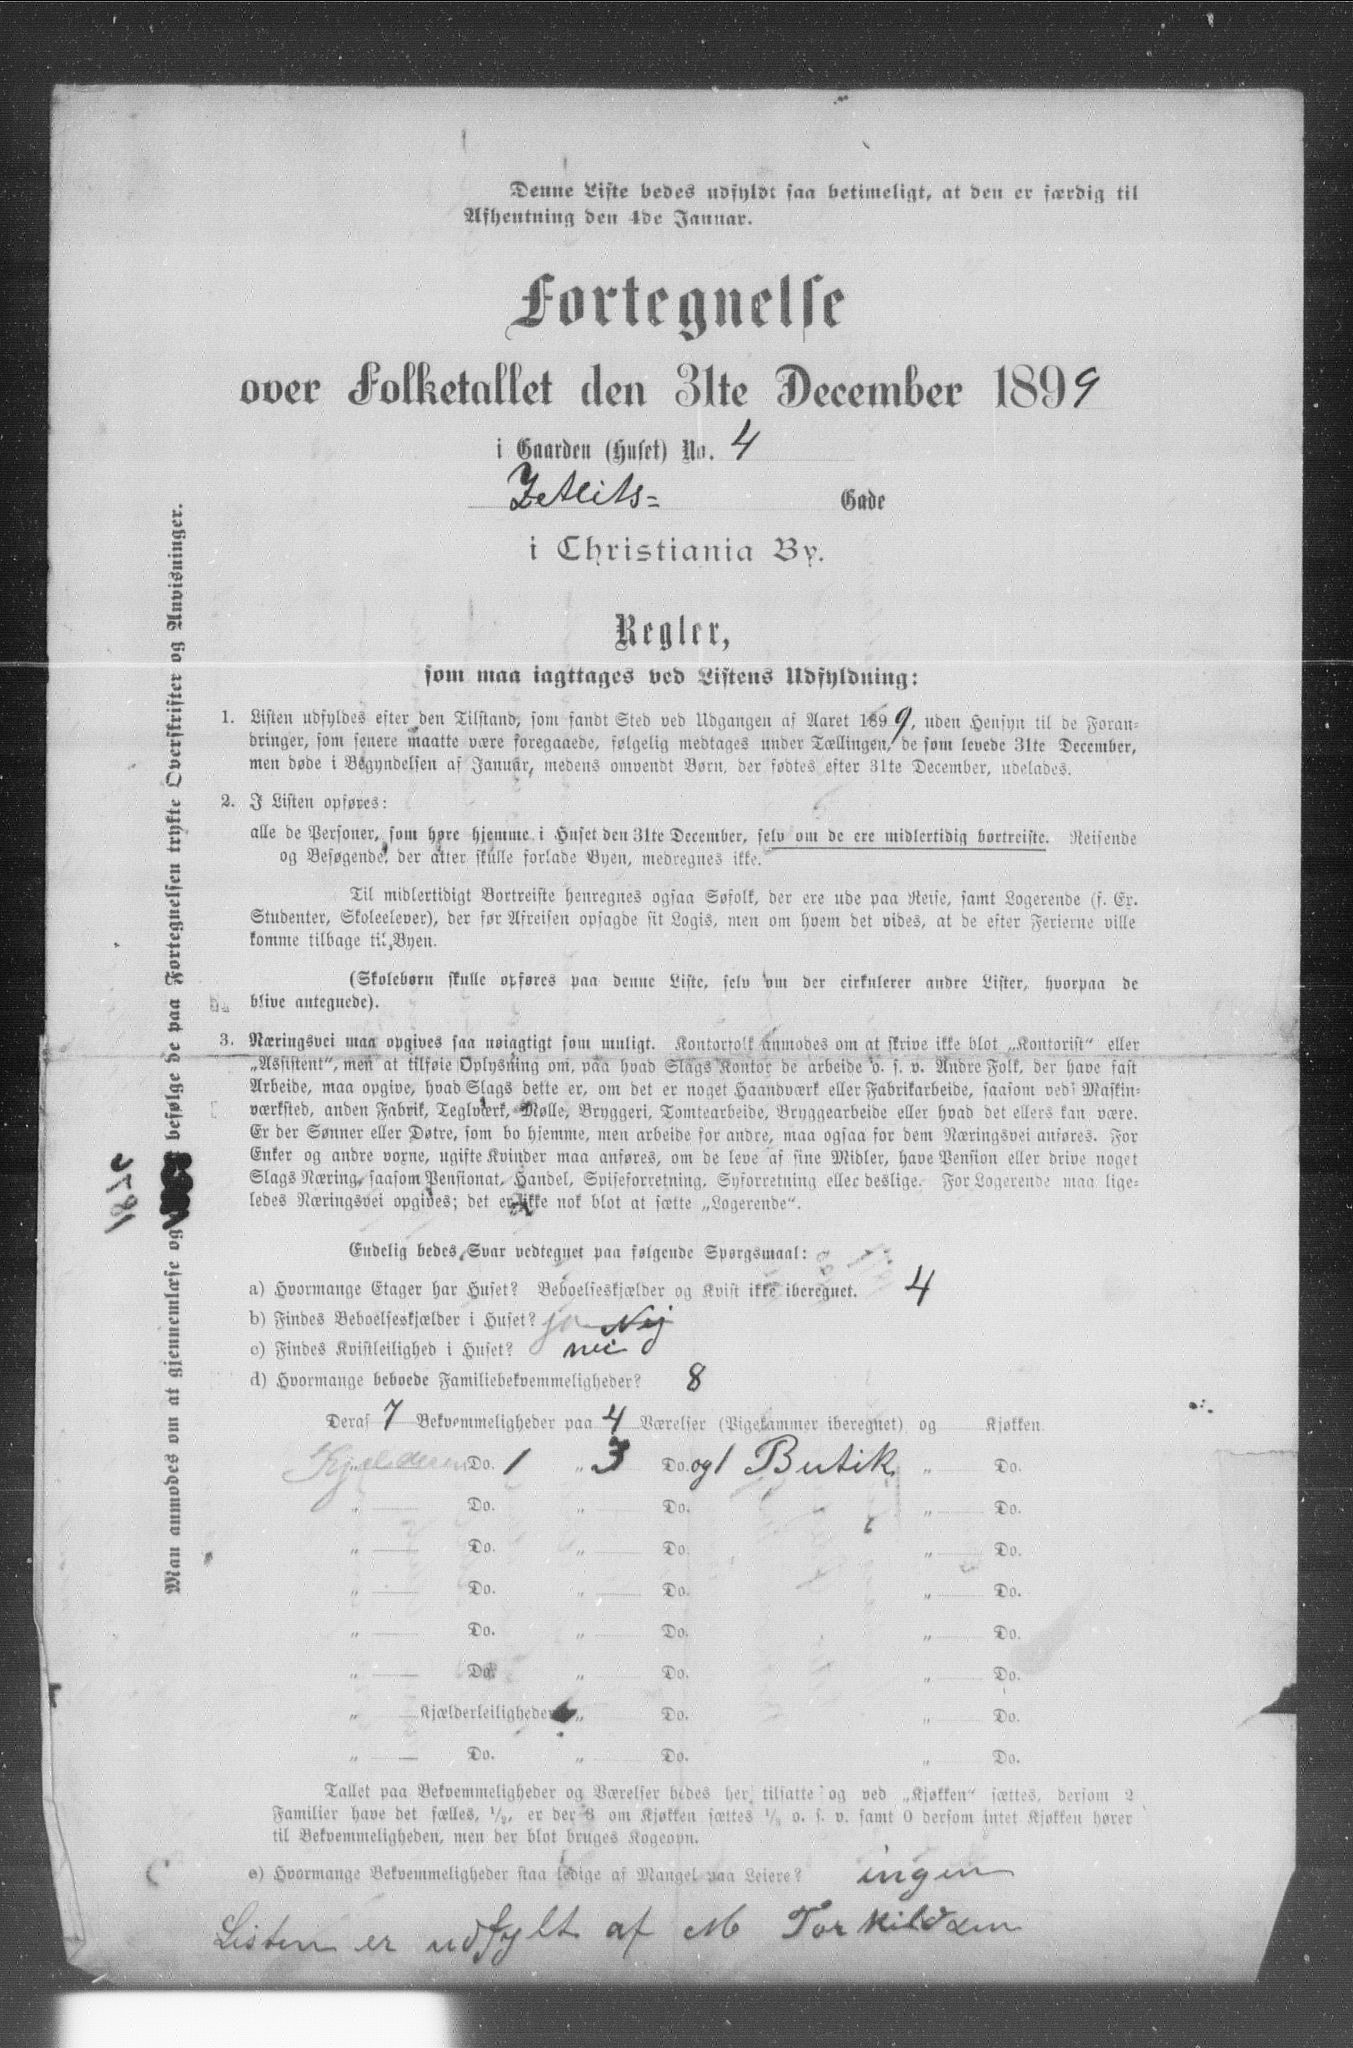 Denne Liste bedes udfyldt saa betimeligt, at den er færdig til
Afhentning den 4de Januar.
Fortegnelse
over Folketallet den 31te December 1899
i Gaarden (Huset) No. 4
Zetlits= Gade
i Christiania By.
Regler,
som maa iagttages ved Listens Udfyldning:
1. Listen udfyldes efter den Tilstand, som fandt Sted ved Udgangen af Aaret 1899, uden Hensyn til de Foran-
dringer, som senere maatte være foregaaede, følgelig medtages under Tællingen, de som levede 31te December,
men døde i Begyndelsen af Januar, medens omvendt Børn, der fødtes efter 31te December, udelades.
2. I Listen opføres:
alle de Personer, som høre hjemme i Huset den 31te December, selv om de ere midlertidig bortreiste. Reisende
og Besøgende, der atter skulle forlade Byen, medregnes ikke.
Til midlertidigt Bortreiste henregnes ogsaa Søfolk, der ere ude paa Reise, samt Logerende (f. Ex.
Studenter, Skoleelever), der før Afreisen opsagde sit Logis, men om hvem det vides, at de efter Ferierne ville
komme tilbage til Byen.
(Skolebørn skulle opføres paa denne Liste, selv om der cirkulerer andre Lister, hvorpaa de
blive antegnede).
3. Næringsvei maa opgives saa nøiagtigt som muligt. Kontorfolk anmodes om at skrive ikke blot „Kontorist“ eller
„Assistent“, men at tilføie Oplysning om, paa hvad Slags Kontor de arbeide o. s. v. Andre Folk, der have fast
Arbeide, maa opgive, hvad Slags dette er, om det er noget Haandværk eller Fabrikarbeide, saasom ved Maskin-
værksted, anden Fabrik, Teglværk, Mølle, Bryggeri, Tomtearbeide, Bryggearbeide eller hvad det ellers kan være.
Er der Sønner eller Døtre, som bo hjemme, men arbeide for andre, maa ogsaa for dem Næringsvei anføres. For
Enker og andre voxne, ugifte Kvinder maa anføres, om de leve af sine Midler, have Pension eller drive noget
Slags Næring, saasom Pensionat, Handel, Spiseforretning, Syforretning eller deslige. For Logerende maa lige-
ledes Næringsvei opgives; det er ikke nok blot at sætte „Logerende“.
Endelig bedes Svar vedtegnet paa følgende Spørgsmaal:
a) Hvormange Etager har Huset? Beboelseskjælder og Kvist ikke iberegnet. 4
b) Findes Beboelseskjælder i Huset? ja Nej
c) Findes Kvistleilighed i Huset? nei
d) Hvormange beboede Familiebekvemmeligheder? 8
Deraf 7 Bekvemmeligheder paa 4 Værelser (Pigekammer iberegnet) og Kjøkken.
Kjælderen „ Do. 1 „ 3 Do. og 1 Butik „ Do.
„ Do. „ Do. „ Do.
„ Do. „ Do. „ Do.
„ Do. „ Do. „ Do.
„ Do. „ Do. „ Do.
„ Do. „ Do. „ Do.
„ Kjælderleiligheder „ Do. „ Do.
„ Do. „ Do. „ Do.
Tallet paa Bekvemmeligheder og Værelser bedes her tilsatte og ved „Kjøkken“ sættes, dersom 2
Familier have det fælles, 1/2, er der 3 om Kjøkken sættes 1/3 o. s. v. samt 0 dersom intet Kjøkken hører
til Bekvemmeligheden, men der blot bruges Kogeovn.
e) Hvormange Bekvemmeligheder staa ledige af Mangel paa Leiere? ingen
Listen er udfylt af M Torkildsen
Man anmodes om at gjennemlæse og befølge de paa Fortegnelsen trykte Overskrifter og Anvisninger.